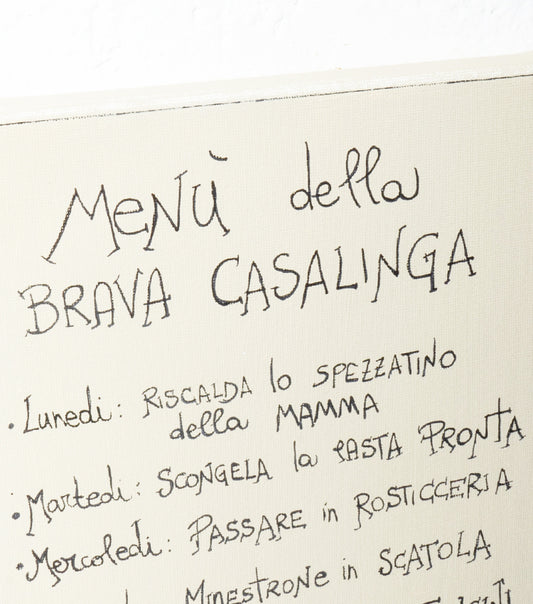 MENÙ della
BRAVA CASALINGA
• Lunedì: RISCALDA lo SPEZZATINO
della MAMMA
• Martedì: SCONGELA la PASTA PRONTA
• Mercoledì: PASSARE in ROSTICCERIA
MINESTRONE in SCATOLA